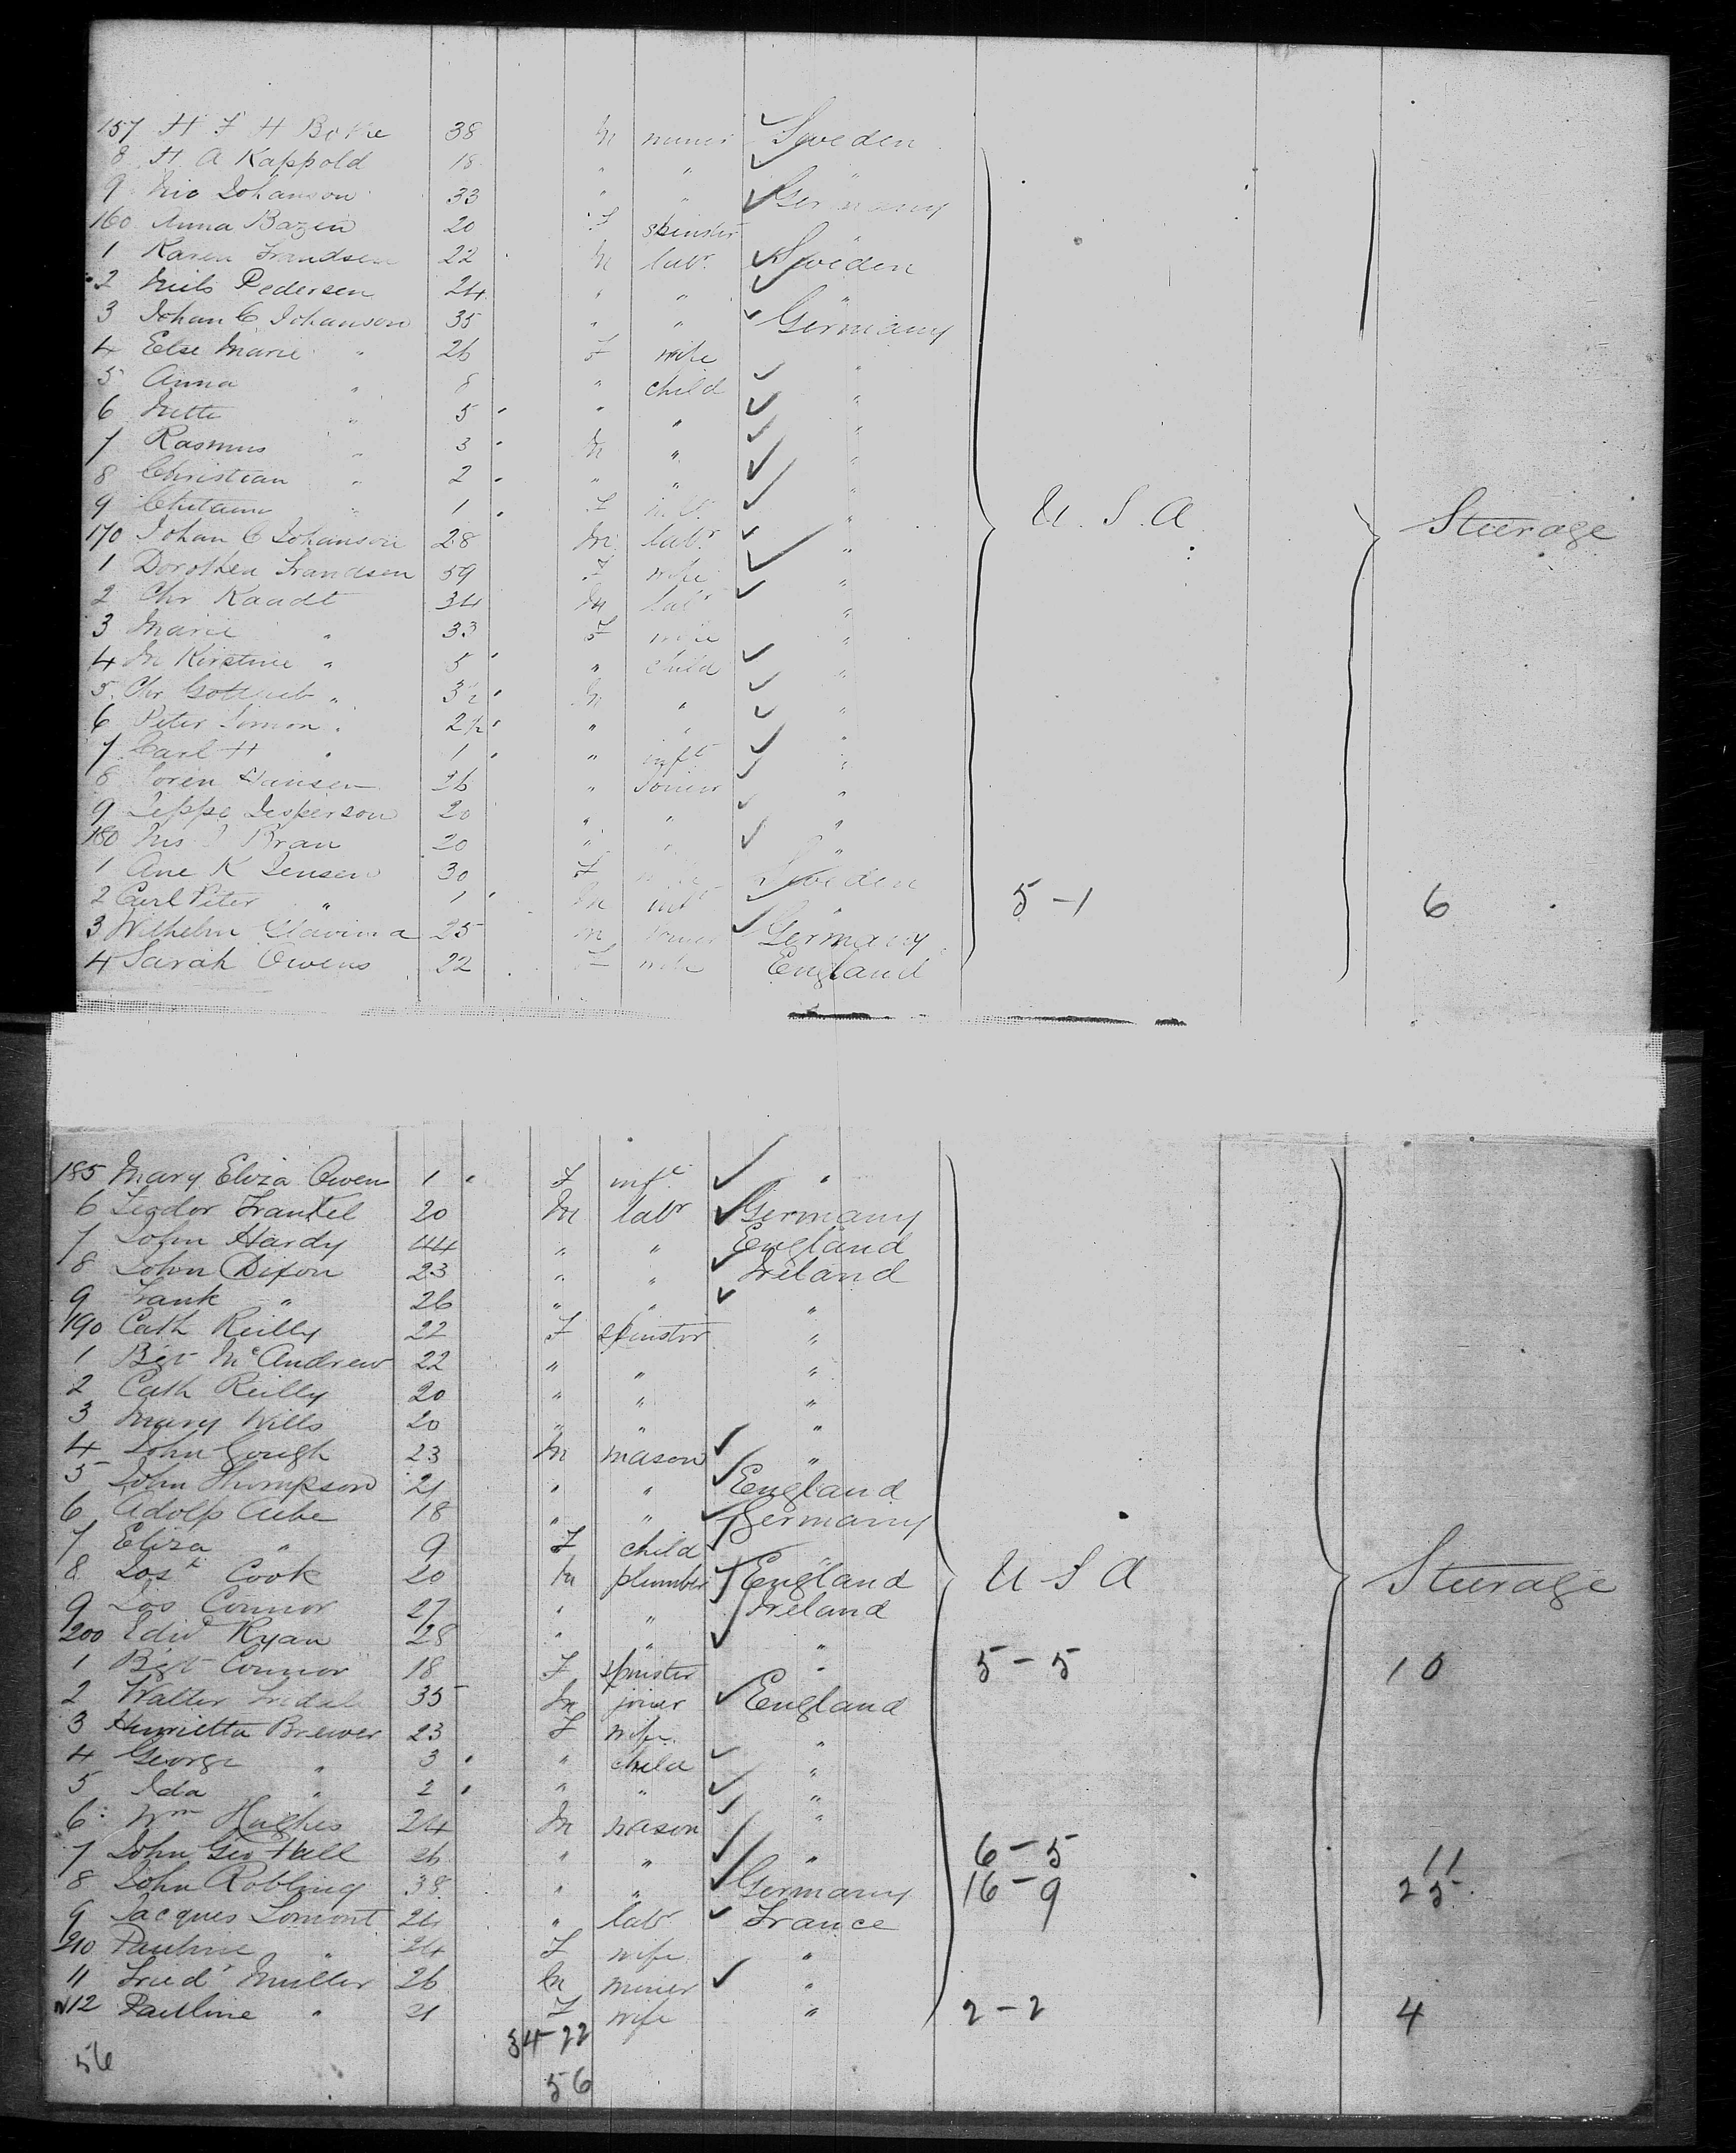 157 H F H Bohe 38 M miner Sweden
8 H A Kappold 18 " " "
9 Nio Johanson 33 " " Germany
160 Anna Bazen 20 F spinster "
1 Karen Frandsen 22 M labr Sweden
2 Niels Pedersen 24 " " "
3 Johan C Johanson 35 " " Germany
4 Else Marie " 26 F wife "
5 Anna " 8 " child "
6 Mette " 5 " " "
7 Rasmus " 3 M " "
8 Christian " 2 " " "
9 " 1 F inft "
170 Johan C Johanson 28 M labr "
U. S. A Steerage
1 Dorothea Frandsen 59 F wife "
2 Chr Kaadt 34 M labr "
3 Marie " 33 F wife "
4 M Kirstine " 5 " child "
5 Chr Gottlieb " 3½ M " "
6 Peter Simon " 2½ " " "
7 Carl H " 1 " inft "
8 Soren Hansen 26 " Joiner "
9 Jeppe Jesperson 20 " " "
180 Bran 20 " " "
1 Ane K Jensen 30 F wife Sweden
2 Carl Peter " 1 M inft " 5-1 6
3 Wilhelm 25 M Joiner Germany
4 Sarah Owens 22 F wife England
185 Mary Eliza Owen 1 F inft "
6 Teodor Frankel 20 M labr Germany
7 John Hardy 44 " " England
8 John Dixon 23 " " Ireland
9 Frank " 26 " " "
190 Cath Reilly 22 F spinster "
1 Bet McAndrew 22 " " "
2 Cath Reilly 20 " " "
3 Mary Wills 20 " " "
4 John Gough 23 M mason "
5 John Thompson 21 " " England
6 Adolf 18 " " Germany
7 Eliza " 9 F child "
8 Jost Cook 20 M plumber England U S A Steerage
9 Jos Connor 27 " " Ireland
200 Edwd Ryan 28 " " "
1 Bet Connor 18 F spinster " 5-5 10
2 Walter 35 M joiner England
3 Henrietta Brewer 23 F wife "
4 George " 3 " child "
5 Ida " 2 " " "
6 Wm Hughes 24 M mason "
7 John Geo Hall 26 " " " 6-5 11
8 John Robling 38 " " Germany 16-9 25
9 Jacques Lomont 24 " labr France
210 Pauline " 24 F wife "
11 Fried Muller 26 M miner "
12 Pauline " 21 F wife " 2-2 4
34-22
56 56